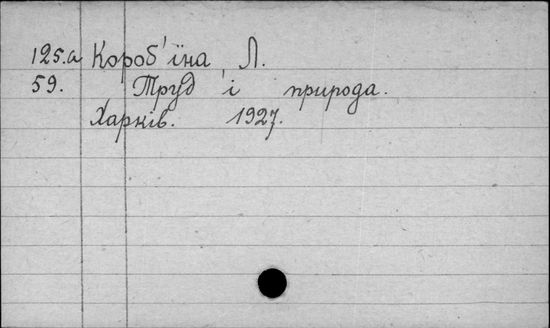 125.a Короб'їна Л.
59. Труд і природа.
Харків. 1927.